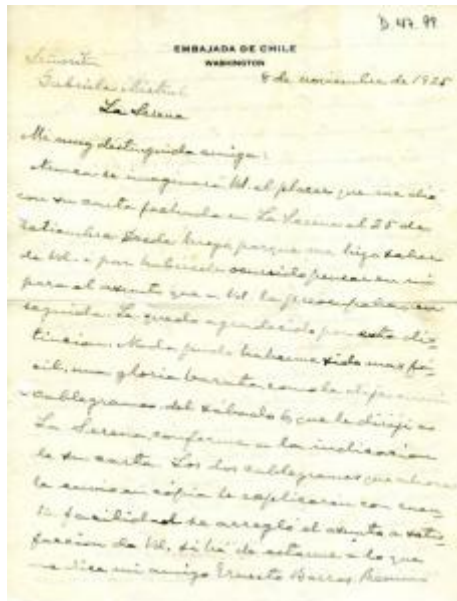 D. 47. 99
EMBAJADA DE CHILE
WASHINGTON
8 de noviembre de 1925
Señorita
Gabriela Mistral
La Serena
Mi muy distinguida amiga:
Nunca se imaginará Ud. el placer que me dió
con su carta fechada en La Serena el 25 de
Setiembre. Desde luego porque me hizo saber
de Ud. i por haberse ocurrido pensar en mi
para el asunto que a Ud. la preocupaba en
seguida. Le quedo agradecido por esta dis-
tincion. Nada pudo haberme sido mas fá-
cil, una gloria barata, como le dije en mi
cablegrama del sábado 6, que le dirijí a
La Serena, conforme a la indicacion
de su carta. Los dos cablegramas que ahora
le envio en cópia le esplicarán con cuan-
ta facilidad se arregló el asunto a satis-
faccion de Ud. si he de estarme a lo que
me dice mi amigo Ernesto Barros